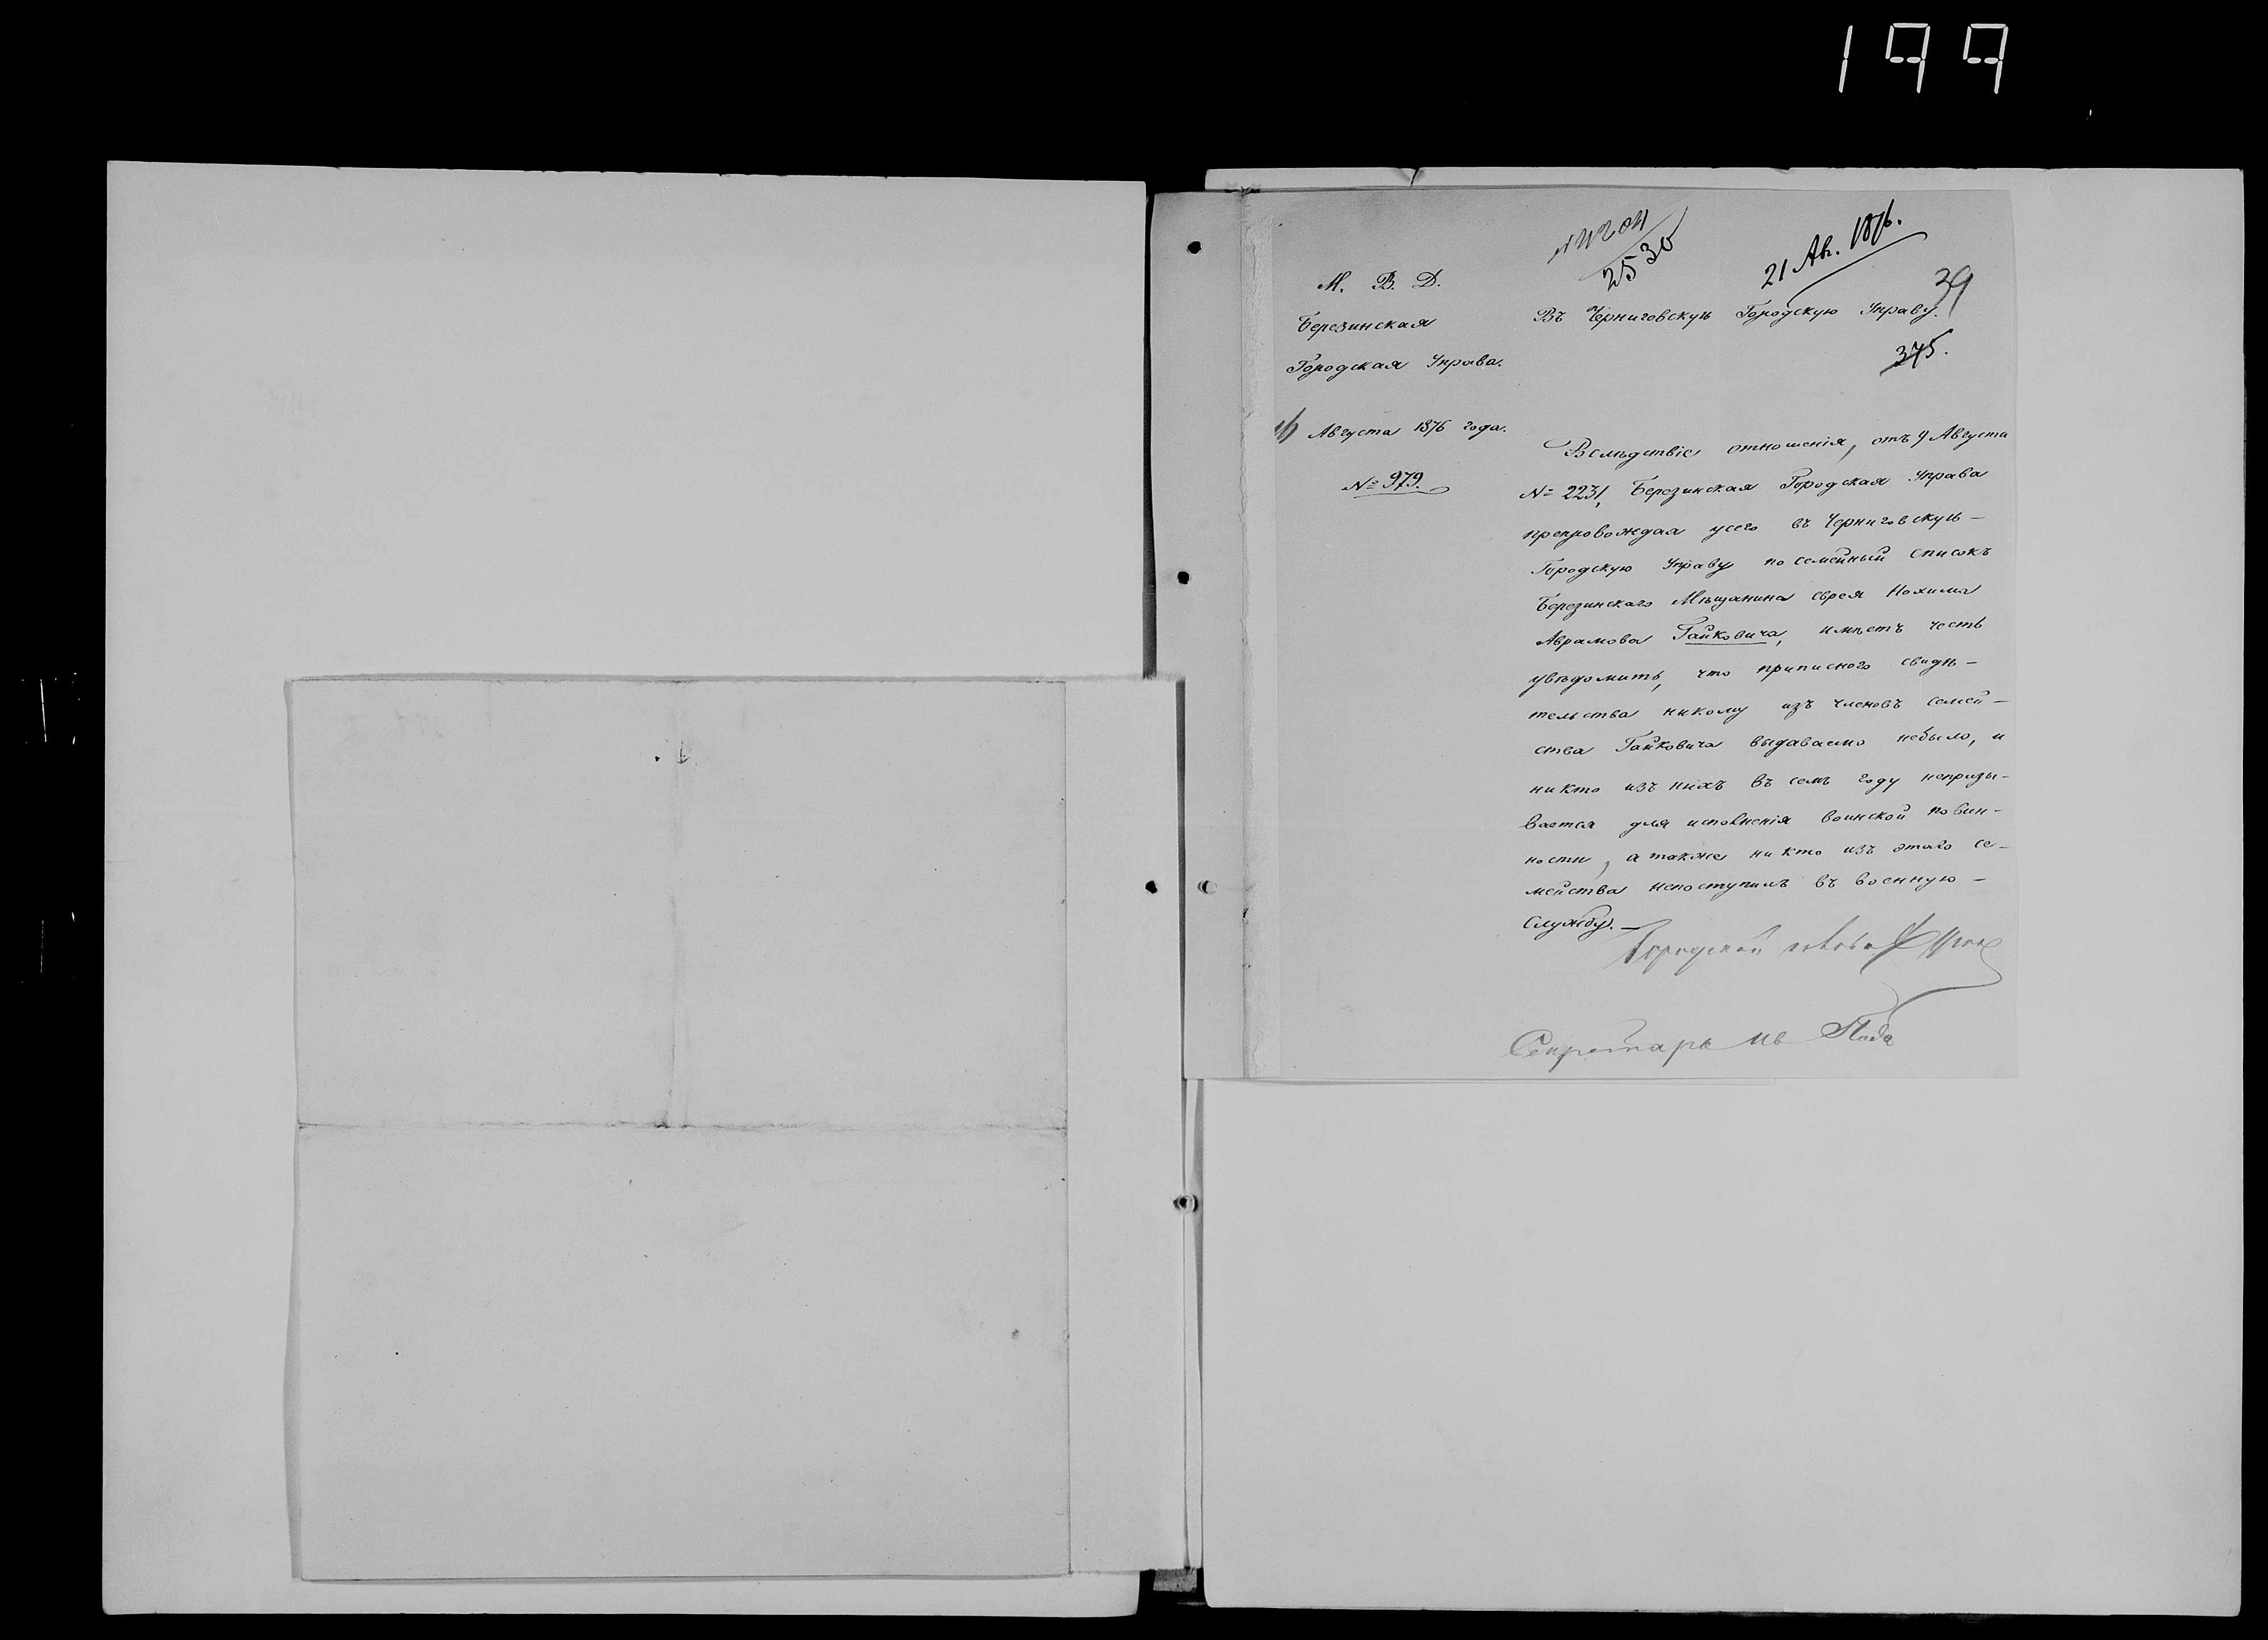 199
2530
21 Ав. 1876.
39
М. В. Д.
Березинская
Городская Управа.
16 Августа 1876 года.
№ 979.
Въ Черниговскую Городскую Управу.
375.
Вслѣдствіе отношенія, отъ 9 Августа
№ 2231, Березинская Городская Управа
препровождая усего въ Черниговскую –
Городскую Управу посемейный списокъ
Березинскаго Мѣщанина еврея Нохима
Аврамова Гайковича, имѣетъ честь
увѣдомить, что приписного свидѣ–
тельства никому изъ членовъ семей–
ства Гайковича выдаваемо небыло, и
никто изъ нихъ въ семъ году непризы–
вается для исполненія воинской повин–
ности, а также никто изъ этаго се–
мейства непоступилъ въ военную –
службу. –
Городской голова
Секретарь